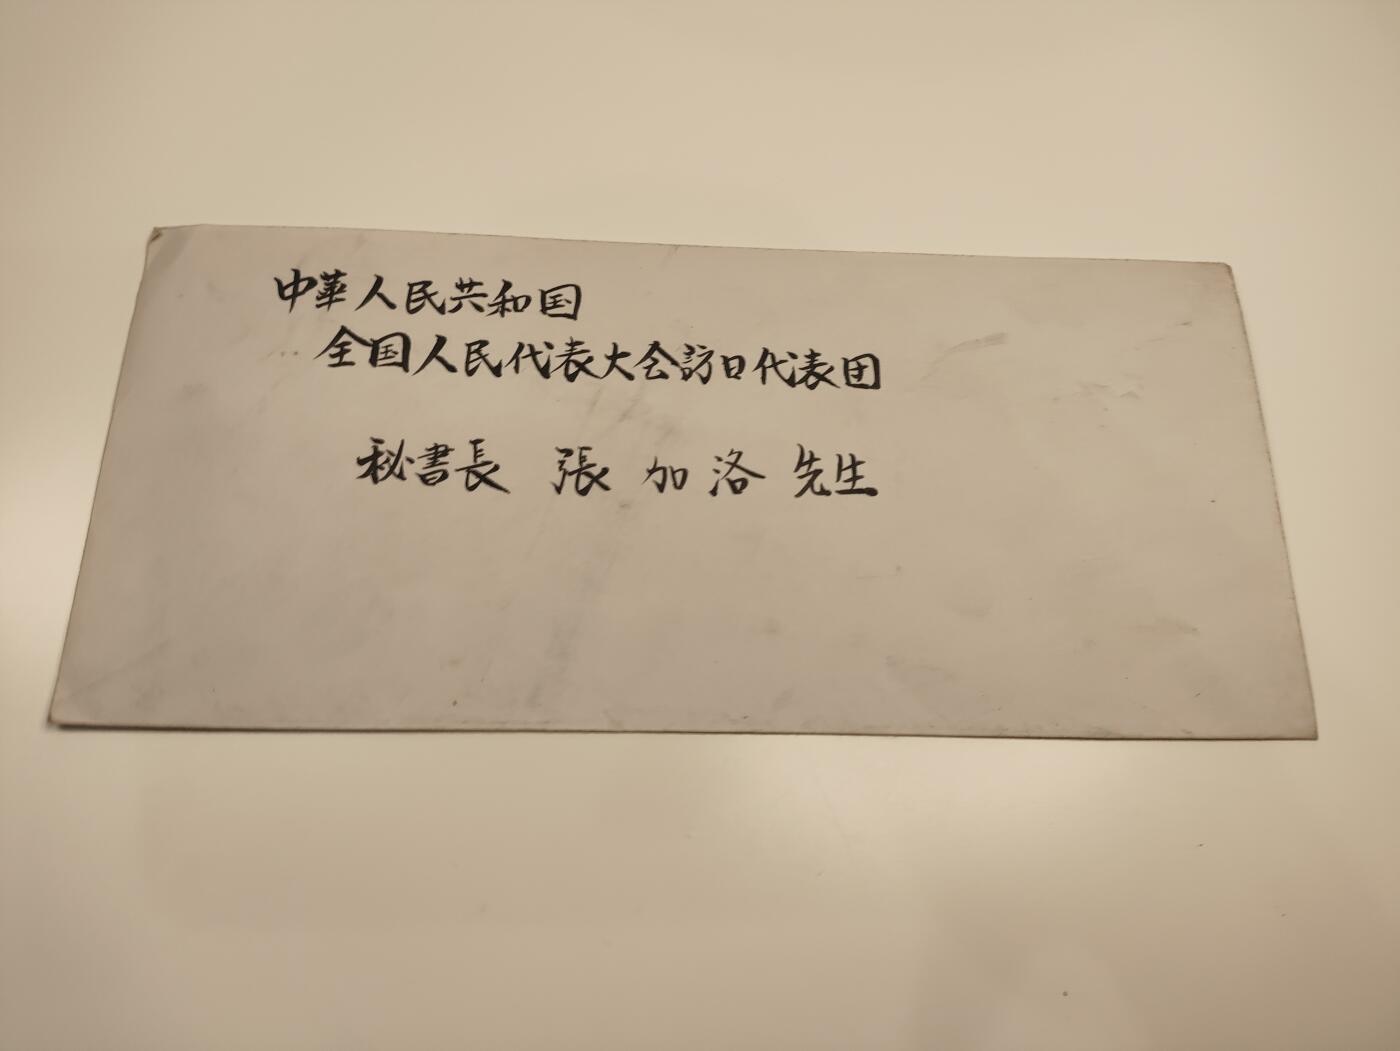 中華人民共和国
全国人民代表大会訪日代表団
秘書長 張 加 洛 先生